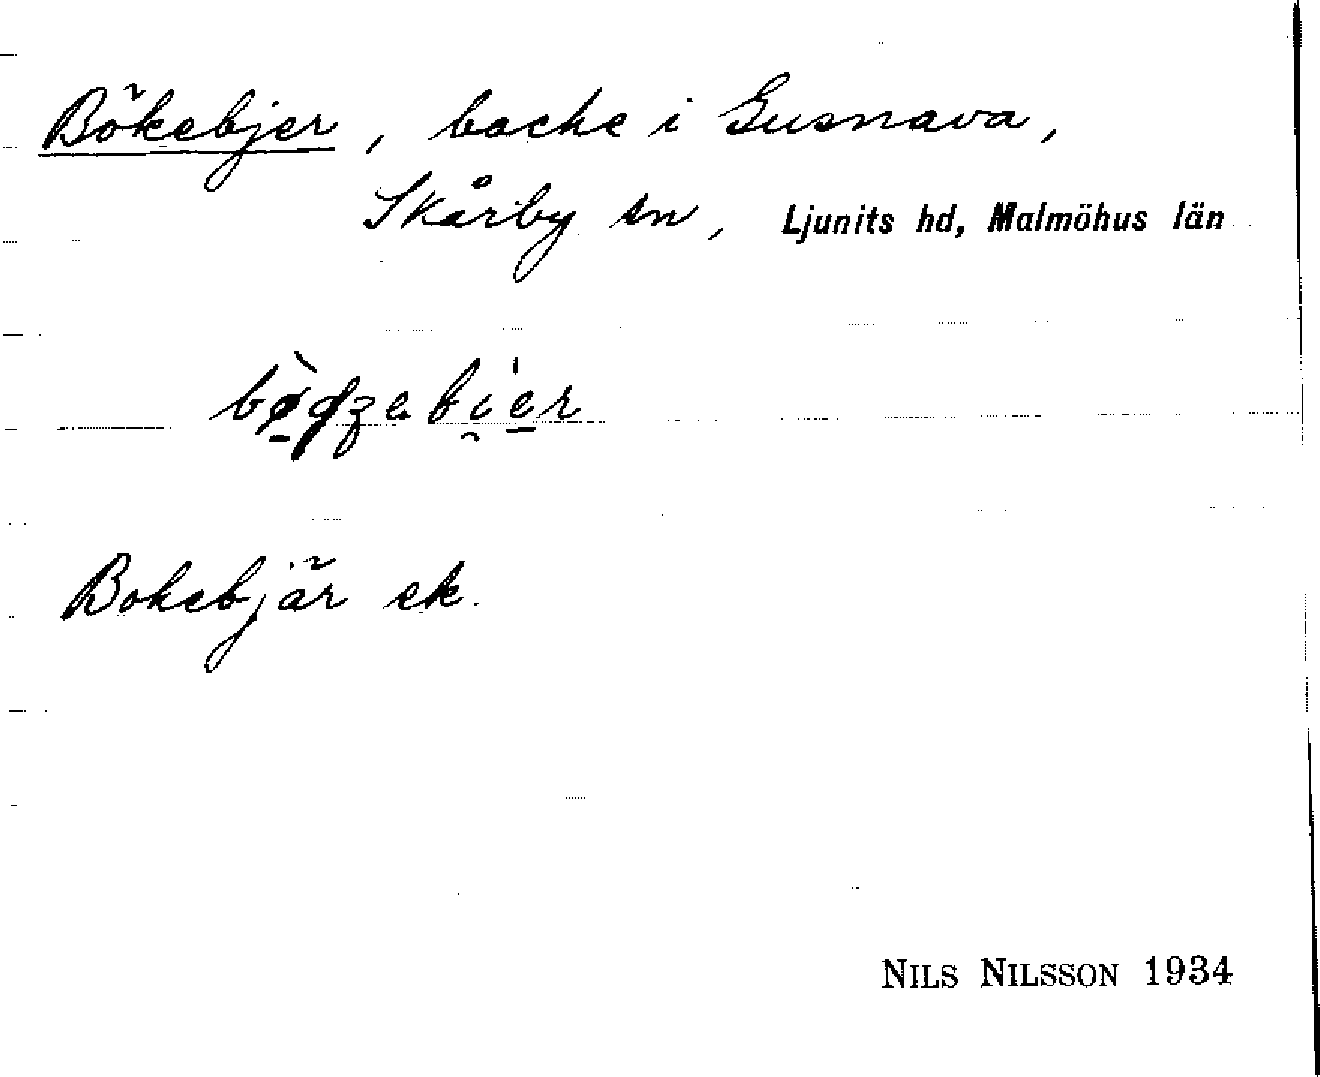 Bökebjer, backe i Gusnava,
Skårby sn, Ljunits hd, Malmöhus län
Bokebjär ek.
NILS NILSSON 1934